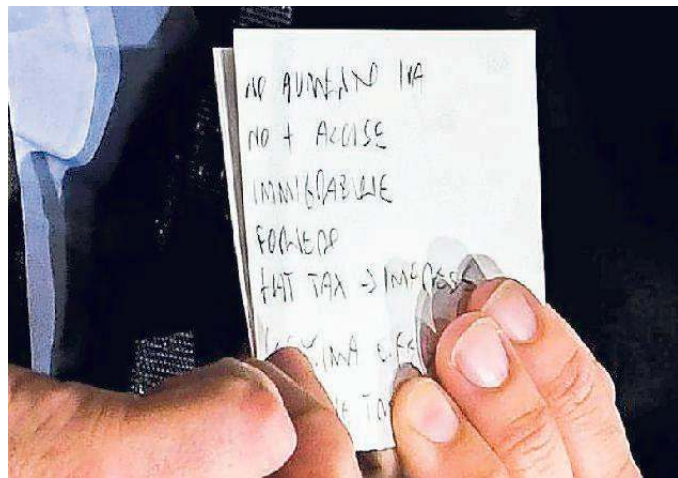 NO AUMENTO IVA
NO + ACCISE
IMMIGRAZIONE
FORNERO
FLAT TAX → IMPRESE